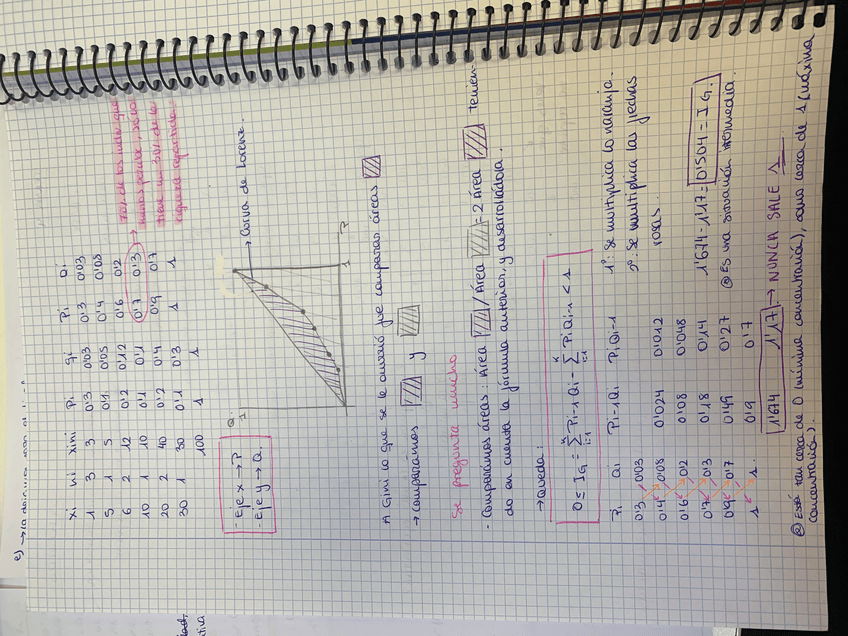 e) → la
xi ni xini pi qi Pi Qi
1 3 3 0'3 0'03 0'3 0'03
5 1 5 0'1 0'05 0'4 0'08
6 2 12 0'2 0'12 0'6 0'2
10 1 10 0'1 0'1 0'7 0'3
20 2 40 0'2 0'4 0'9 0'7
30 1 30 0'1 0'3 1 1
100 1 1
70% de los indiv que
menos perciben, solo
tiene un 30% de la
riqueza repartida
- Eje x → P
- Eje y → Q.
Qi
1
→ Curva de Lorenz.
1
P
A Gini lo que se le ocurrió fue comparar áreas
→ comparamos y
Se pregunta mucho
- Comparamos áreas: Área / Área = 2 Área tenien
do en cuenta la fórmula anterior, y desarrollándola.
→ Queda:
0 ≤ IG = Σ Pi-1 Qi - Σ Pi Qi-1 < 1
k i=1 k i=1
Pi Qi Pi-1Qi PiQi-1
0'3 0'03
0'4 0'08 0'024 0'012
0'6 0'2 0'08 0'048
0'7 0'3 0'18 0'14
0'9 0'7 0'49 0'27
1 1. 0'9 0'7
1'674 1'17 → NUNCA SALE 1
1º: Se multiplica lo naranja.
2º: Se multiplica las flechas
rosas.
1'674 - 1'17 = 0'504 = IG.
@ Es una situación intermedia.
@ Está tan cerca de 0 (mínima concentración), como cerca de 1 (máxima
concentración).